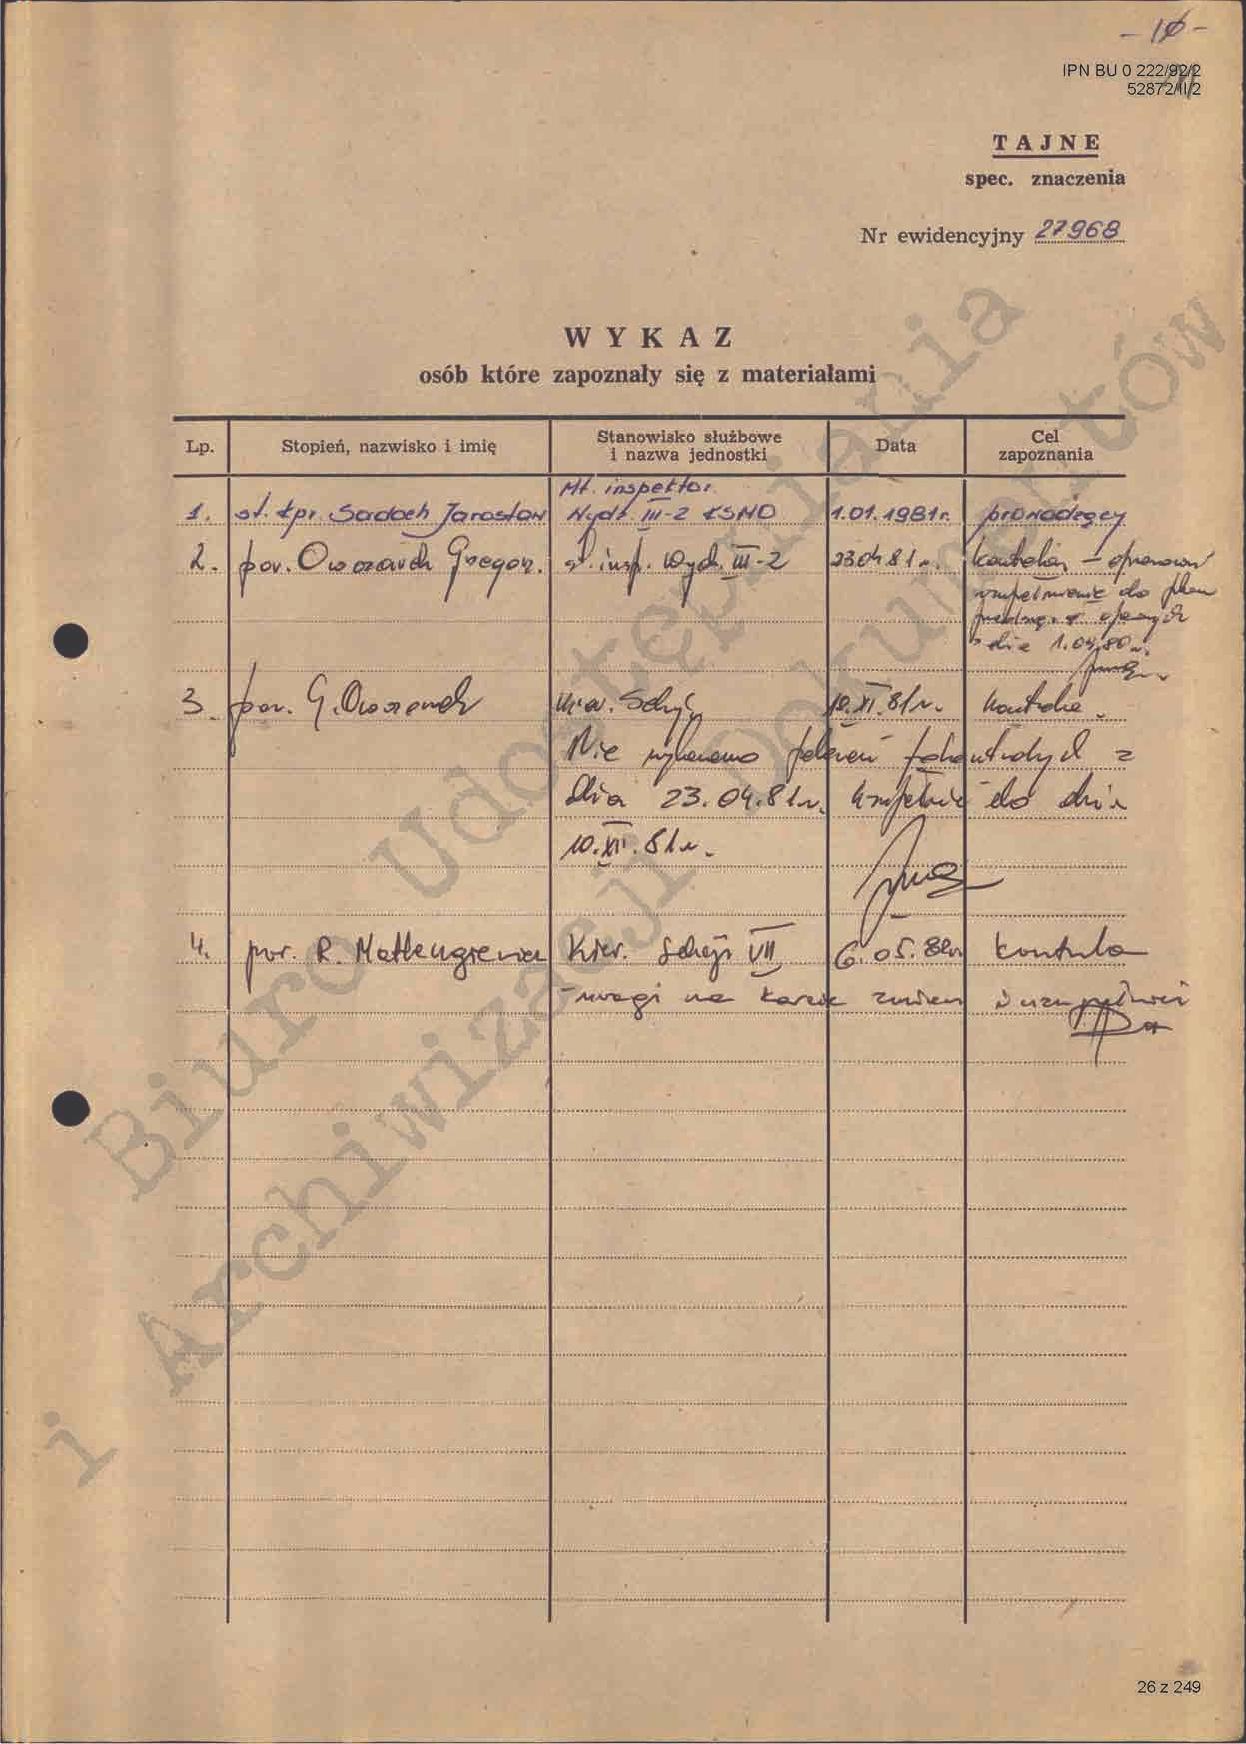 IPN BU 0 222/92/2
52872/II/2
TAJNE
spec. znaczenia
Nr ewidencyjny 27968
WYKAZ
osób które zapoznały się z materiałami
Lp. Stopień, nazwisko i imię Stanowisko służbowe i nazwa jednostki Data Cel zapoznania
Mł. inspektor
1. st. kpr. Sadoch Jarosław Wydz. III-2 KSMO 1.01.1981r. prowadzący
2. por. Owczarek Grzegorz. st. insp. Wydz. III-2 23.04.81r. kontrola –
uzupełnienie do planu
1.04.80r.
3. por. G. Owczarek Kier. Sekcji 10.XI.81r. kontrola.
Nie wykonano poleceń pokontrolnych z
dnia 23.04.81r. do dnia
10.XII.81r.
4. por. R. Kier. Sekcji VII 6.05.82r kontrola
uwagi na karcie zmian i uzupełnień
Biuro Udostępniania
i Archiwizacji Dokumentów
26 z 249